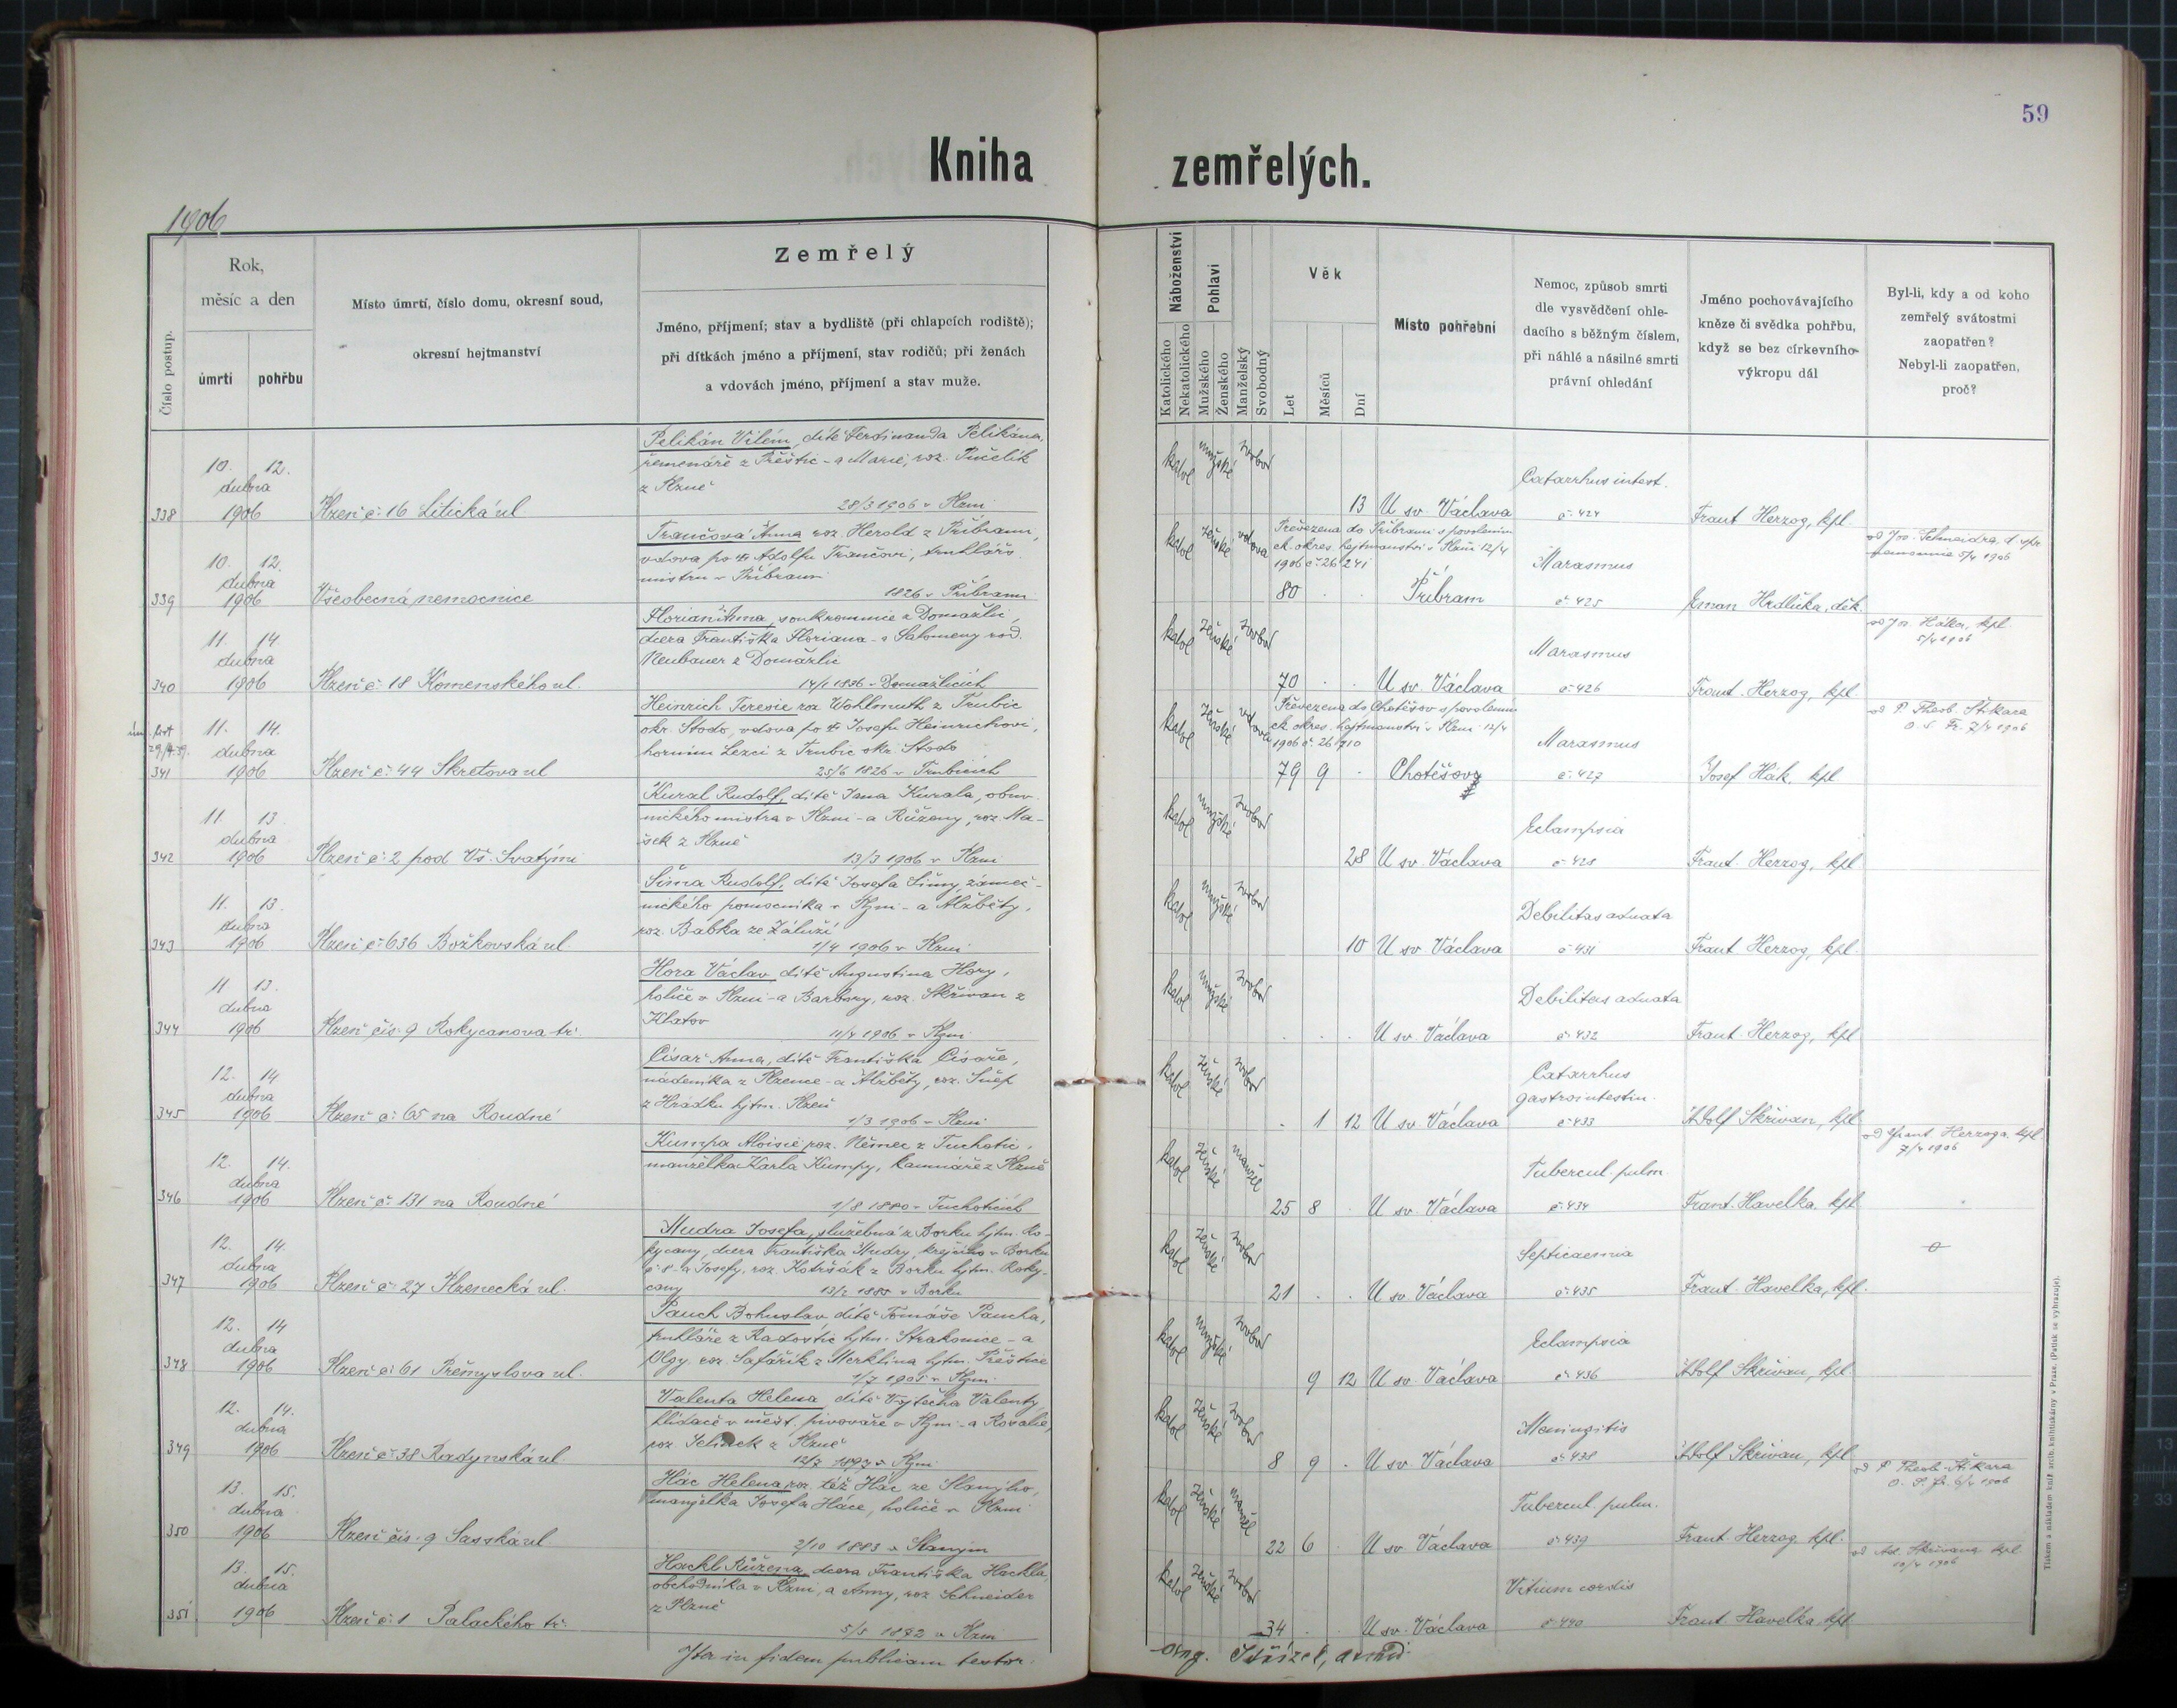 59
Kniha zemřelých.
1906
Číslo postup.
Rok,
měsíc a den
úmrtí
pohřbu
Místo úmrtí, číslo domu, okresní soud,
okresní hejtmanství
Zemřelý
Jméno, příjmení; stav a bydliště (při chlapcích rodiště);
při dítkách jméno a příjmení, stav rodičů; při ženách
a vdovách jméno, příjmení a stav muže.
Náboženství
Katolického
Nekatolického
Pohlaví
Mužského
Ženského
Manželský
Svobodný
Věk
Let
Měsíců
Dní
Místo pohřební
Nemoc, způsob smrti
dle vysvědčení ohle-
dacího s běžným číslem,
při náhlé a násilné smrti
právní ohledání
Jméno pochovávajícího
kněze či svědka pohřbu,
když se bez církevního
výkropu dál
Byl-li, kdy a od koho
zemřelý svátostmi
zaopatřen?
Nebyl-li zaopatřen,
proč?
338
10. 12.
dubna
1906
Plzeň č. 16 Litická ul.
Pelikán Vilém, dítě Ferdinanda Pelikána,
řemenáře z Přeštic - a Marie, roz. Pučelík
z Plzně
28/3 1906 v Plzni
katol mužské svobod
13 U sv. Václava
Catarrhus intest.
č. 424
Frant Herzog, kpl.
339
10. 12.
dubna
1906
Všeobecná nemocnice
Trančová Anna roz. Herold z Příbrami,
vdova po † Adolfu Trančovi, truhlářs.
mistru v Příbrami
1826 v Příbrami
katol ženské vdova
Převezena do Příbrami s povolením
ck. okres. hejtmanství v Plzni 12/4
1906 č. 26241
80 Příbram
Marasmus
č. 425
Eman Hrdlička, děk.
od Jos. Schneidra, d. spr.
nemocnice 5/4 1906
340
11. 14
dubna
1906
Plzeň č. 18 Komenského ul.
Florian Anna, soukromnice z Domažlic,
dcera Františka Floriana - a Salomeny rod.
Neubauer z Domažlic
14/1 1836 v Domažlicích
katol ženské svobod
70 U sv. Václava
Marasmus
č. 426
Frant. Herzog, kpl
5/4 1906
341
11. 14.
dubna
1906
Plzeň č. 44 Skretova ul
Heinrich Teresie roz Wohlmuth z Trubic
okr. Stodo, vdova po † Josefu Heinrichovi,
horním z Trubic okr. Stodo
25/6 1826 v Trubicích
katol ženské vdova
Převezena do Chotěšov s povolením
ck okres. hejtmanství v Plzni 12/4
1906 č. 26710
79 9 Chotěšov
Marasmus
č. 427
Josef Hák, kpl
od P. Theob. Štikara
O. S. Fr. 7/4 1906
342
11. 13.
dubna
1906
Plzeň č. 2 pod Vš. Svatými
Kural Rudolf, dítě Jana Kurala, obuv-
nického mistra v Plzni - a Růženy, roz. Ma-
šek z Plzně
13/3 1906 v Plzni
katol mužské svobod
28 U sv. Václava
Eclampsia
č. 428
Frant. Herzog, kpl
343
11. 13.
dubna
1906
Plzeň č. 636 Božkovská ul
Šima Rudolf, dítě Josefa Šimy, zámeč-
nického pomocníka v Plzni - a Alžběty,
roz. Babka ze Záluží
1/4 1906 v Plzni
katol mužské svobod
10 U sv. Václava
Debilitas adnata
č. 431
Frant Herzog, kpl.
344
11 13.
dubna
1906
Plzeň čís. 9 Rokycanova tř.
Hora Václav dítě Augustina Hory,
holiče v Plzni - a Barbory, roz. Skřivan z
Klatov
11/4 1906 v Plzni
katol mužské svobod
U sv. Václava
Debilitas adnata
č. 432
Frant. Herzog, kpl
345
12. 14
dubna
1906
Plzeň č. 65 na Roudné
Císař Anna, dítě Františka Císaře,
nádeníka z Plzence - a Alžběty, roz.
z Hrádku hjtm. Plzeň
1/3 1906 v Plzni
katol ženské svobod
1 12 U sv. Václava
Catarrhus
gastrointestin.
č. 433
Adolf Skřivan, kpl
346
12. 14.
dubna
1906
Plzeň č. 131 na Roudné
Kumpa Aloisie roz. Němec z Tuchotic,
manželka Karla Kumpy, kamnáře z Plzně
1/8 1880 v Tuchoticích
katol ženské manžel
25 8 U sv. Václava
Tubercul. pulm.
č. 434
Frant. Havelka, kpl
od Frant. Herzoga, kpl
7/4 1906
347
12. 14.
dubna
1906
Plzeň č. 27 Plzenecká ul.
Mudra Josefa, služebná z Borku hjtm. Ro-
kycany, dcera Františka Mudry, krejčího v Borku
č. 8 - a Josefy, roz. Kotršák z Borku hjtm. Roky-
cany 13/2 1885 v Borku
katol ženské svobod
21 U sv. Václava
Septicaemia
č. 435
Frant. Havelka, kpl.
348
12. 14
dubna
1906
Plzeň č. 61 Přemyslova ul.
Pauch Bohuslav, dítě Tomáše Paucha,
truhláře z Radostic hjtm. Strakonice - a
Olgy, roz. Šafařík z Merklína hjtm. Přeštice
1/7 1905 v Plzni
katol mužské svobod
9 12 U sv. Václava
Eclampsia
č. 436
Adolf Skřivan, kpl.
349
12. 14.
dubna
1906
Plzeň č. 38 Radynská ul.
Valenta Helena, dítě Vojtěcha Valenty,
hlídače v měšt. pivováře v Plzni - a Rosalie,
roz. z Plzně
12/7 1897 v Plzni
katol ženské svobod
8 9 U sv. Václava
Meningitis
č. 438
Adolf Skřivan, kpl
350
13. 15.
dubna
1906
Plzeň čís. 9 Sasská ul.
Hác Helena roz. též Hác ze Slaného,
manželka Josefa Háce, holiče v Plzni
2/10 1883 v Slaným
katol ženské manžel
22 6 U sv. Václava
Tubercul. pulm.
č. 439
Frant. Herzog, kpl.
od P Theob. Štikara
O. S. Fr. 6/4 1906
351
13. 15.
dubna
1906
Plzeň č. 1 Palackého tř.
Hackl Růžena, dcera Františka Hackla,
obchodníka v Plzni, a Anny, roz Schneider
z Plzně
5/5 1872 v Plzni
katol ženské svobod
34 U sv. Václava
Vitium cordis
č. 440
Frant. Havelka, kpl
od Ad. Skřivana kpl
10/4 1906
Ita in fidem publicam testor.
Tiskem a nákladem kníž. arcib. knihtiskárny v Praze. (Patisk se vyhrazuje).